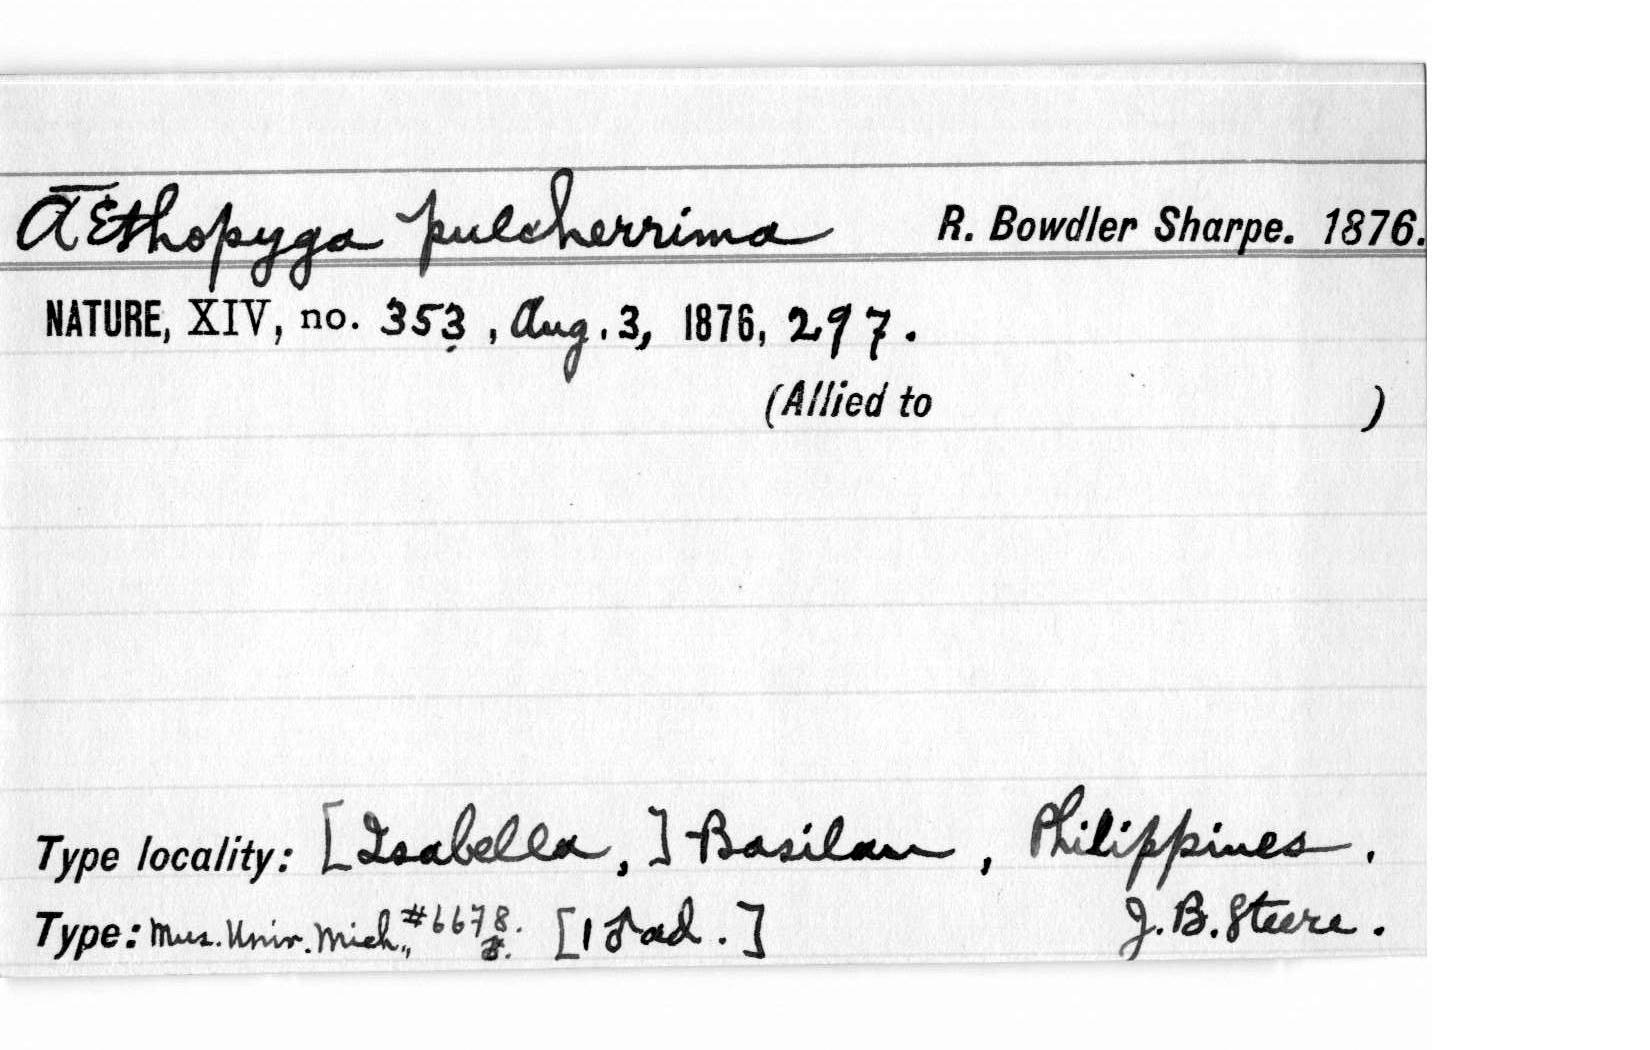 Æthopyga pulcherrima R. Bowdler Sharpe. 1876.
NATURE, XIV, no. 353, Aug. 3, 1876, 297.
(Allied to )
Type locality: [Isabella,] Basilan, Philippines.
Type: Mus. Univ. Mich., #6678. [1 ♂ ad.] J. B. Steere.